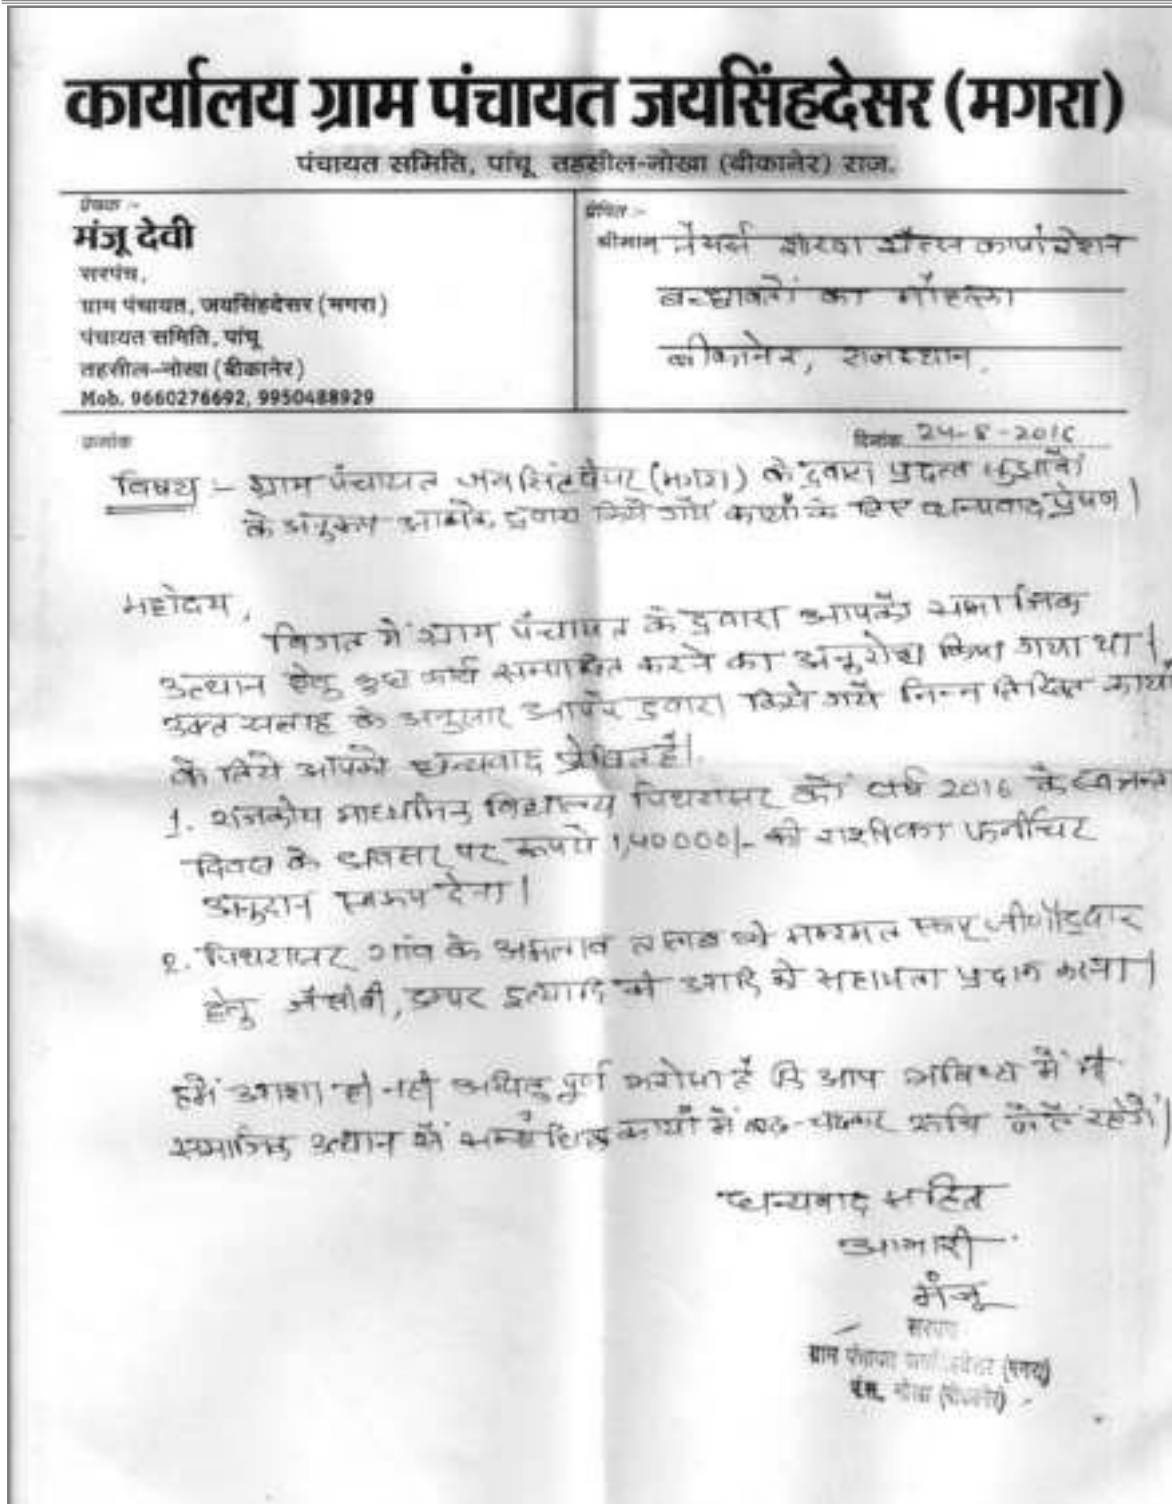 कार्यालय ग्राम पंचायत जयसिंहदेसर (मगरा)
पंचायत समिति, पांचू तहसील-नोखा (बीकानेर) राज.
प्रेषक :-
मंजू देवी
सरपंच,
ग्राम पंचायत, जयसिंहदेसर (मगरा)
पंचायत समिति, पांचू
तहसील-नोखा (बीकानेर)
Mob. 9660276692, 9950488929
प्रेषित :-
श्रीमान मैसर्स शारदा कार्पोरेशन
का मौहल्ला
बीकानेर, राजस्थान.
क्रमांक
दिनांक 24-8-2016
विषय :- ग्राम पंचायत जयसिंहदेसर (मगरा) के द्वारा प्रदत्त सुझावों
के अनुरूप आपके द्वारा किये गये कार्यो के लिए धन्यवाद प्रेषण।
महोदय,
विगत में ग्राम पंचायत के द्वारा आपको सामाजिक
उत्थान हेतु कुछ कार्य सम्पादित करने का अनुरोध किया गया था।
उक्त सलाह के अनुसार आपके द्वारा किये गये निम्न लिखित कार्यो
के लिये आपको धन्यवाद प्रेषित है।
1. राजकीय माध्यमिक विद्यालय पिथरासर को वर्ष 2016 के स्वतन्त्रता
दिवस के अवसर पर रूपये 1,40000/- की राशी का फर्नीचर
अनुदान स्वरूप देना।
2. पिथरासर गांव के तालाब की मरम्मत जीर्णोद्वार
हेतु जेसीबी, डम्पर इत्यादि की आदि से सहायता प्रदान करना।
हमें आशा ही नहीं अपितु पूर्ण भरोसा है कि आप भविष्य में भी
सामाजिक उत्थान से सम्बंधित कार्यो में बढ-चढकर रूचि लेते रहेंगे।
धन्यवाद सहित
आभारी
मंजू
सरपंच
ग्राम पंचायत जयसिंहदेसर (मगरा)
पं.स. नोखा (बीकानेर)